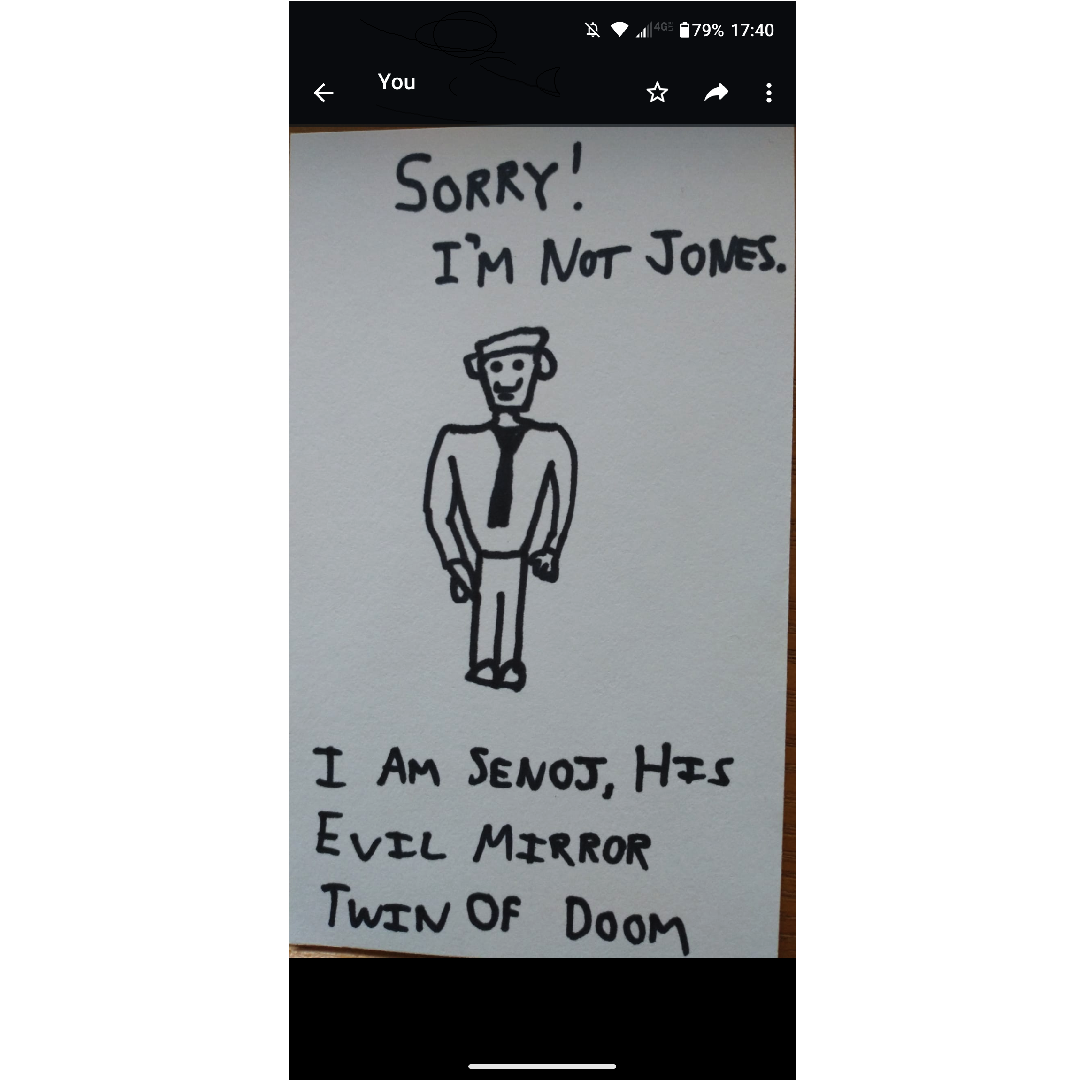 79% 17:40
You
SORRY!
I'M NOT JONES.
I AM SENOJ, HIS
EVIL MIRROR
TWIN OF DOOM